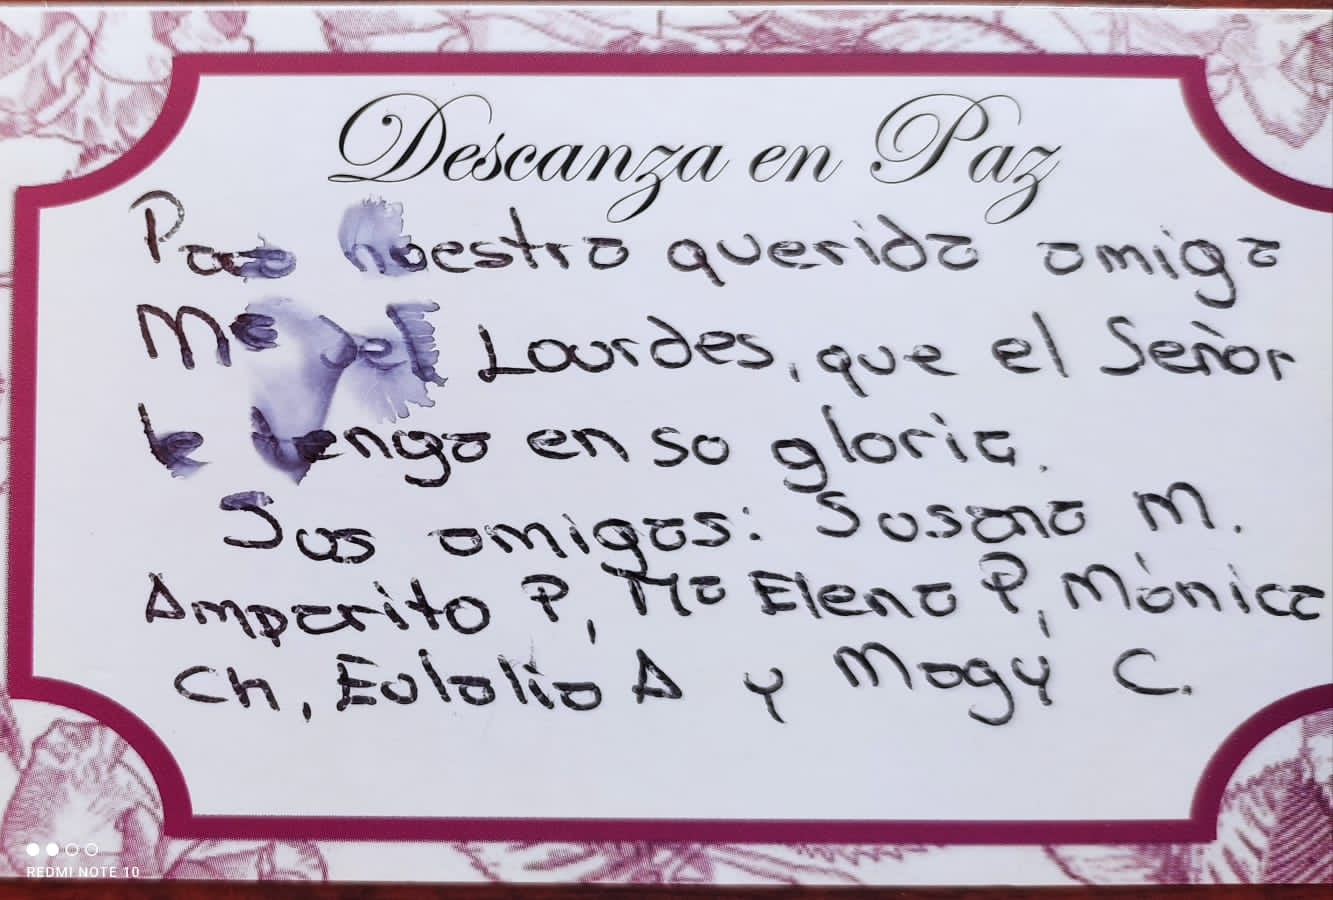 Descanza en Paz
Para nuestra querida amiga
Ma Lourdes, que el Señor
le tenga en su gloria.
Sus amigas: Susana M.
Amparito P, Ma Elena P, Mónica
Ch, Eulalia A y Magy C.
REDMI NOTE 10